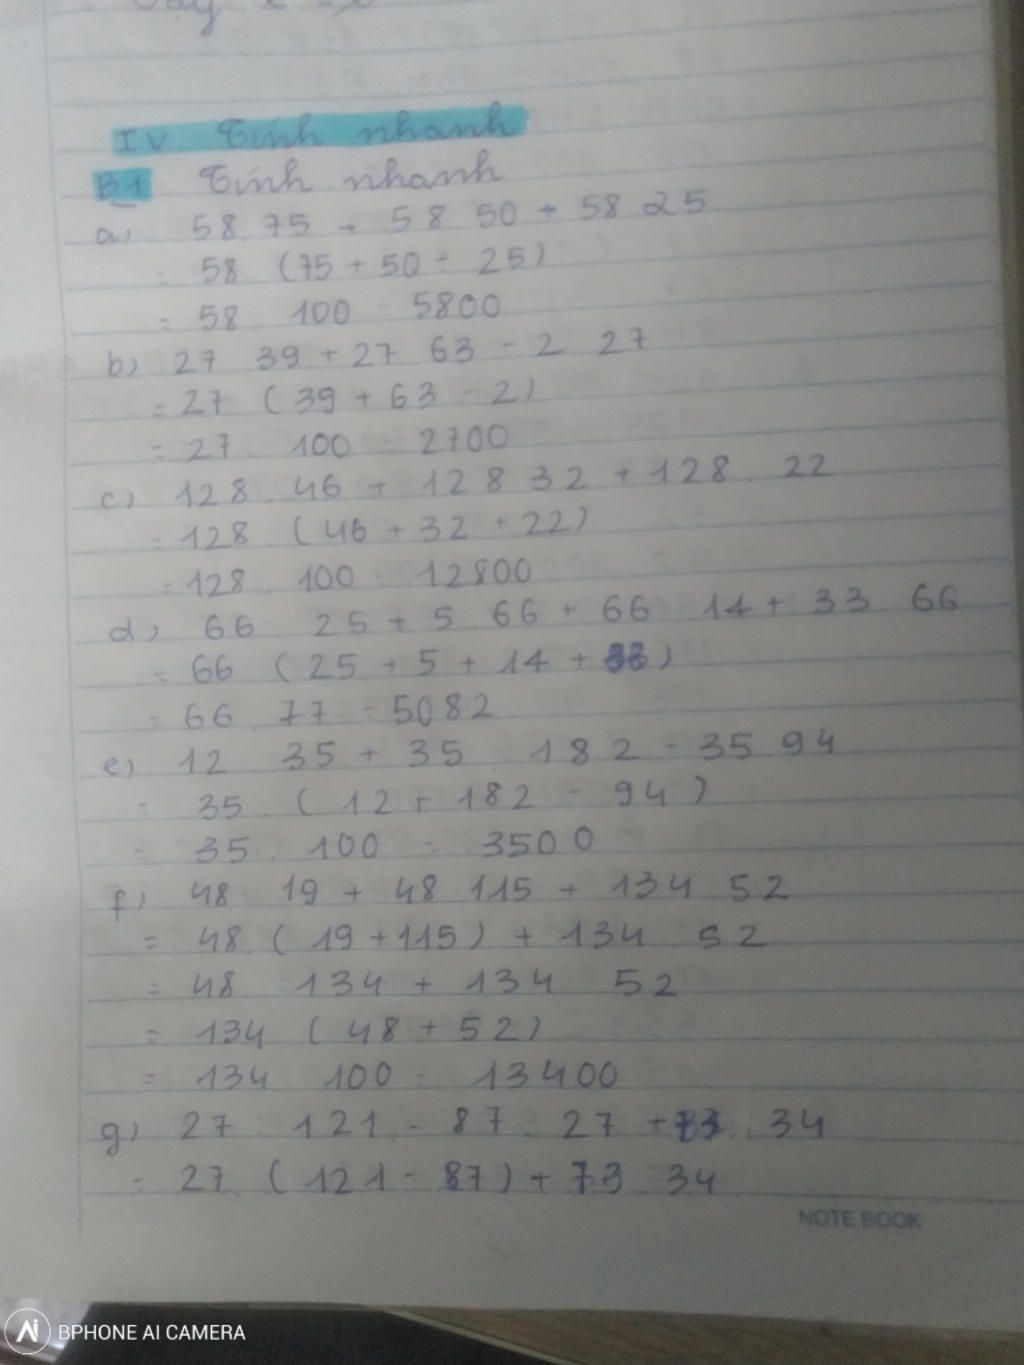 IV Tính nhanh
B1 Tính nhanh
a) 58.75 + 58 50 + 58 25
= 58 (75 + 50 - 25)
= 58 100 = 5800
b) 27 39 + 27 63 - 2 27
= 27 (39 + 63 - 2)
= 27 100 = 2700
c) 128.46 + 128 32 + 128.22
= 128 (46 + 32 + 22)
= 128.100 = 12800
d) 66 25 + 5 66 + 66 14 + 33 66
= 66 (25 + 5 + 14 + 33)
= 66 77 = 5082
e) 12 35 + 35 182 - 35 94
= 35.(12 + 182 - 94)
= 35.100 = 3500
f) 48 19 + 48 115 + 134 52
= 48 (19 + 115) + 134 52
= 48 134 + 134 52
= 134 (48 + 52)
= 134 100 = 13400
g) 27 121 - 87.27 + 73.34
= 27 (121 - 87) + 73 34
NOTE BOOK
Ai BPHONE AI CAMERA